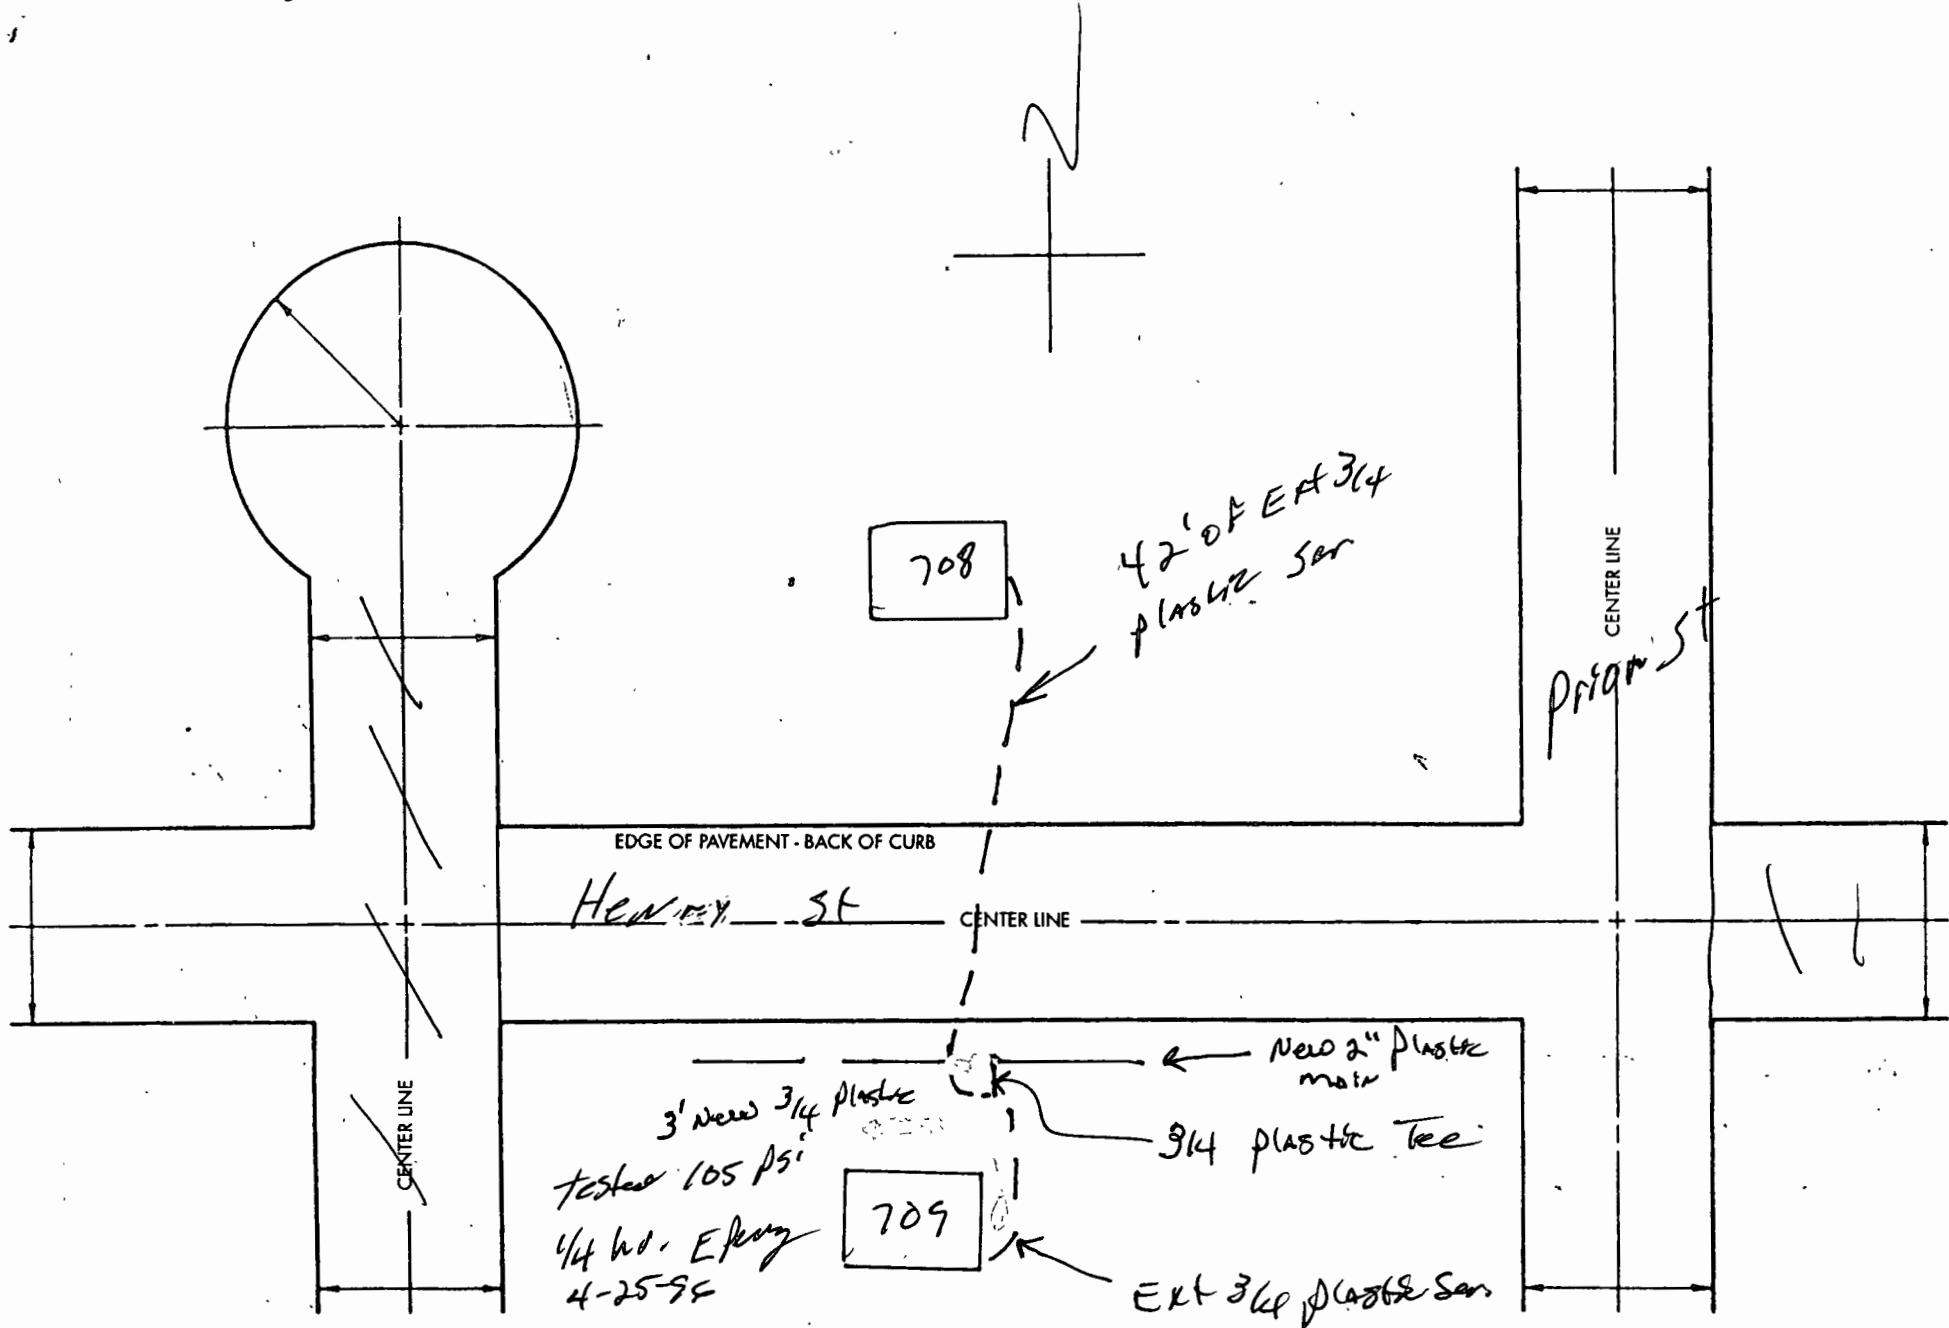 N
708
42' of Ext 3/4
plastic Ser
CENTER LINE
Prior St
EDGE OF PAVEMENT - BACK OF CURB
Henry St
CENTER LINE
New 2" Plastic
main
3' New 3/4 Plastic
3/4 plastic Tee
CENTER LINE
tested 105 psi
1/4 hr.
709
4-25-96
Ext 3/4 plastic Ser